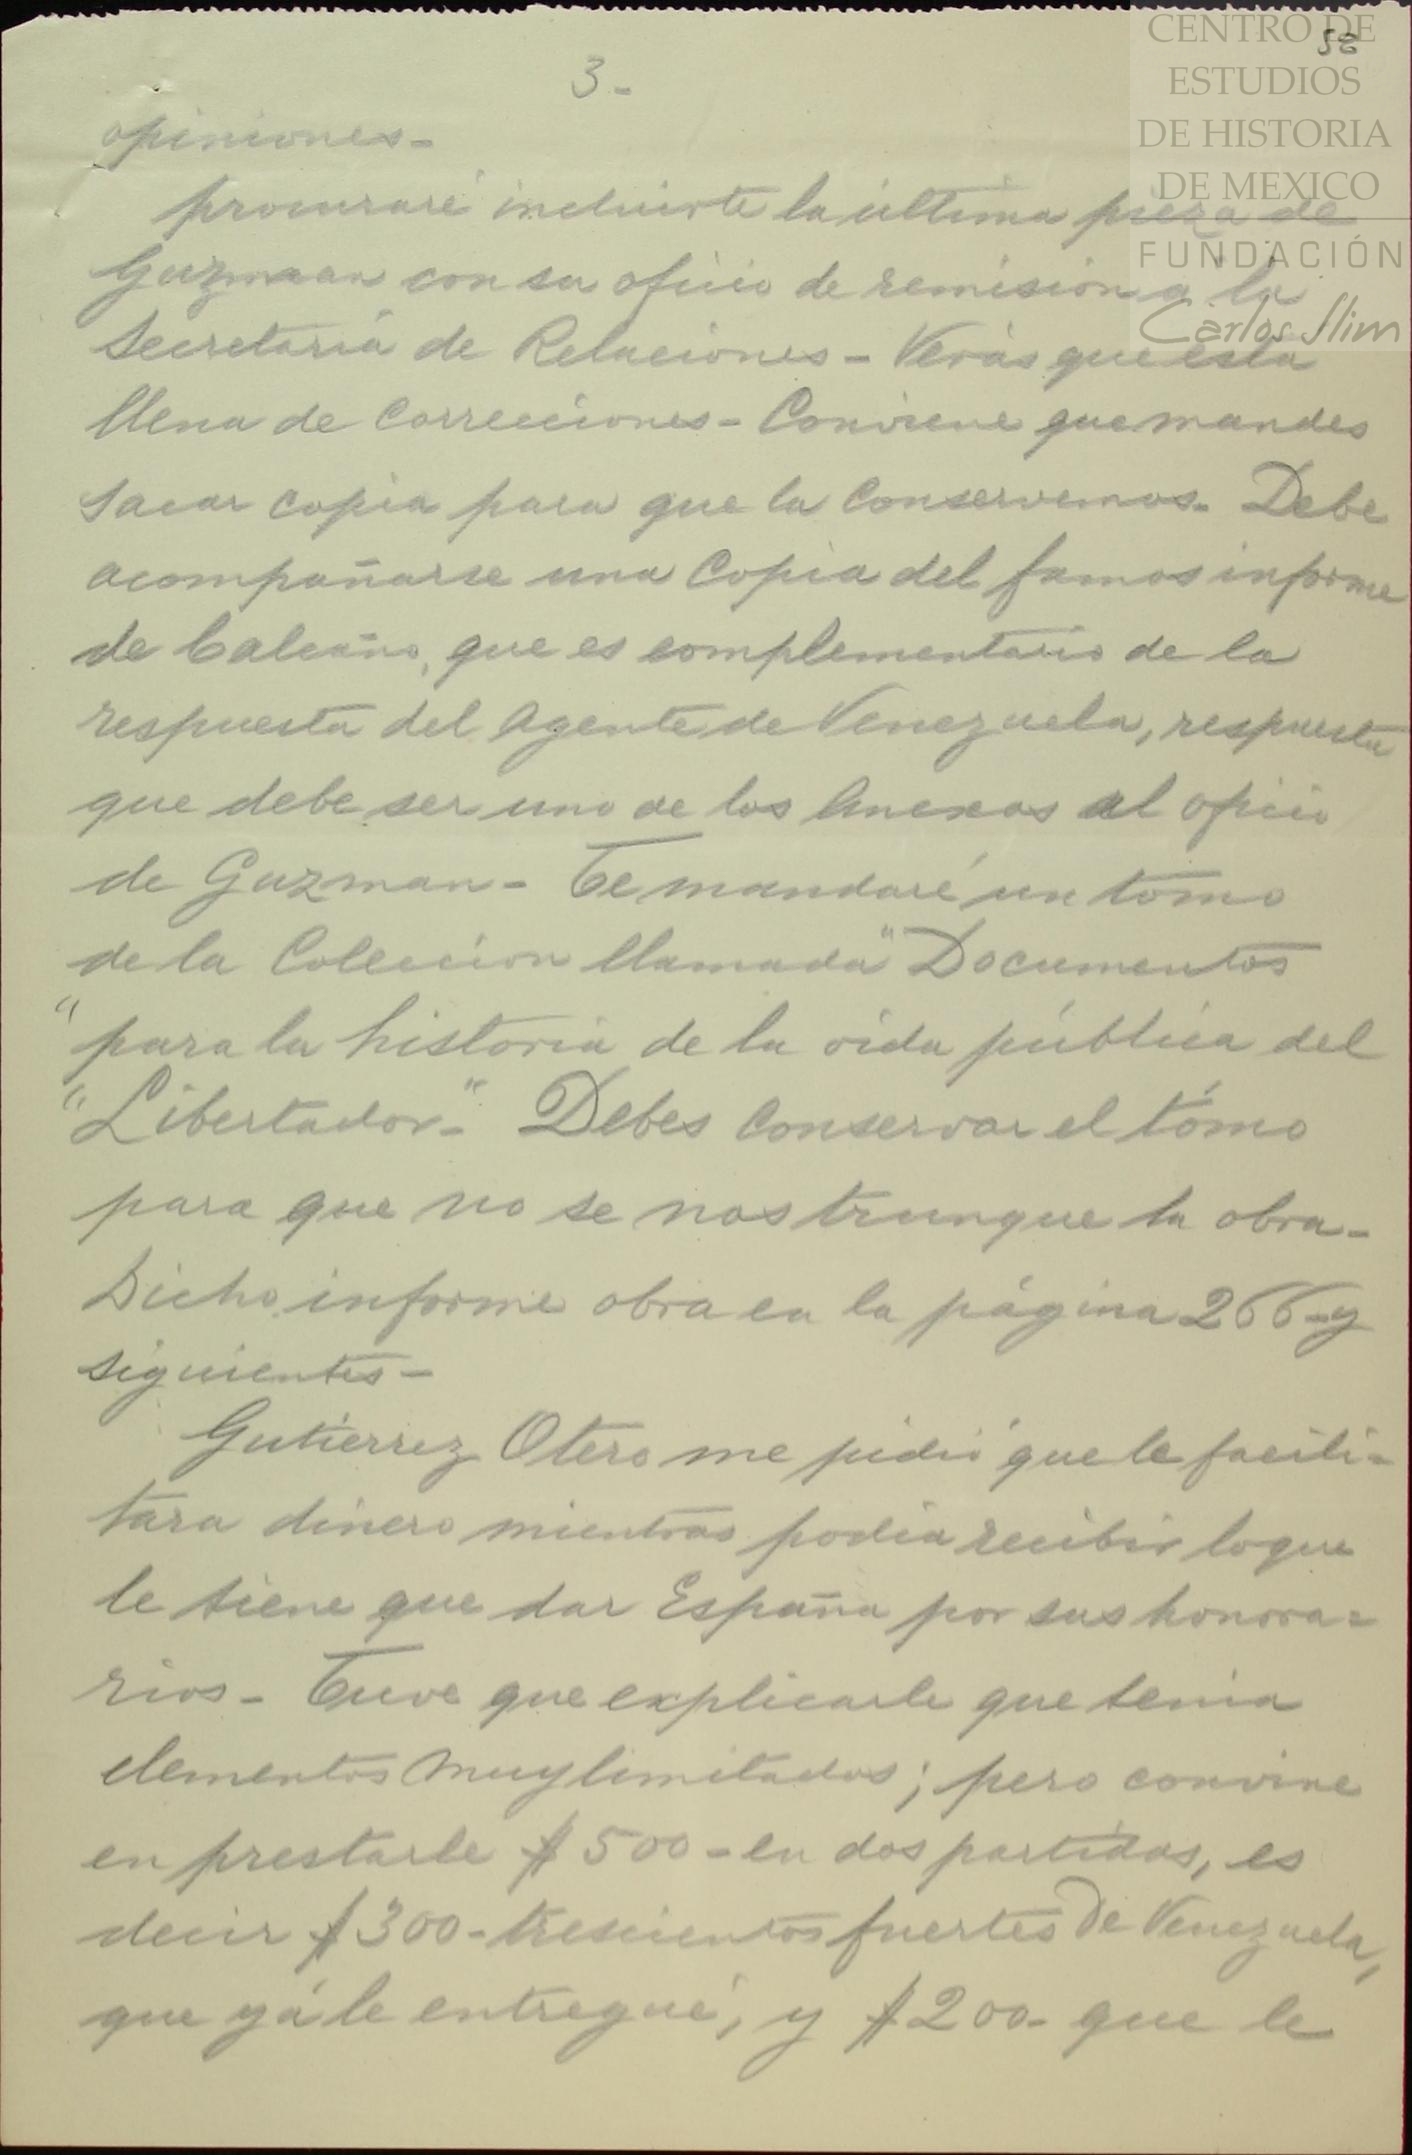 CENTRO DE
ESTUDIOS
DE HISTORIA
DE MEXICO
FUNDACIÓN
Carlos Slim
58
3-
opiniones-
procuraré incluirte la última pieza de
Guzmaan con su oficio de remision a la
Secretaría de Relaciones - Verás que está
llena de correcciones - Conviene que mandes
sacar copia para que la conservemos - Debe
acompañarse una copia del famos informe
de Calcaño, que es complementario de la
respuesta del Agente de Venezuela, respuesta
que debe ser uno de los Anexos al oficio
de Guzman - Te mandaré un tomo
de la Coleccion llamada "Documentos
"para la historia de la vida pública del
"Libertador-" Debes conservar el tómo
para que no se nos trunque la obra-
Dicho informe obra en la página 266- y
siguientes-
Gutierrez Otero me pidió que le facili=
tara dinero mientras podia recibir lo que
le tiene que dar España por sus honora=
rios - Tuve que explicarle que tenia
elementos muy limitados; pero convine
en prestarle $500- en dos partidas, es
decir $300- trescientos fuertes de Venezuela,
que yá le entregué, y $200- que le